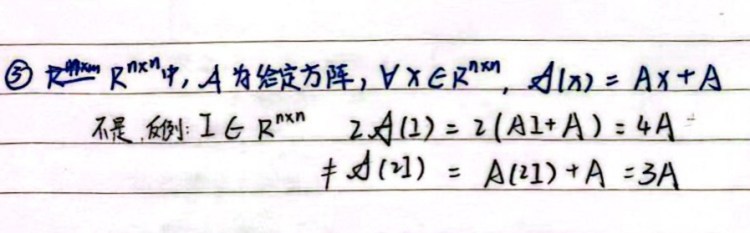 ③ R^{n×n}中, A 为给定方阵, ∀ X ∈ R^{n×n}, 𝒜(x) = AX + A
不是, 反例: I ∈ R^{n×n} 2𝒜(I) = 2(AI + A) = 4A
≠ 𝒜(2I) = A(2I) + A = 3A